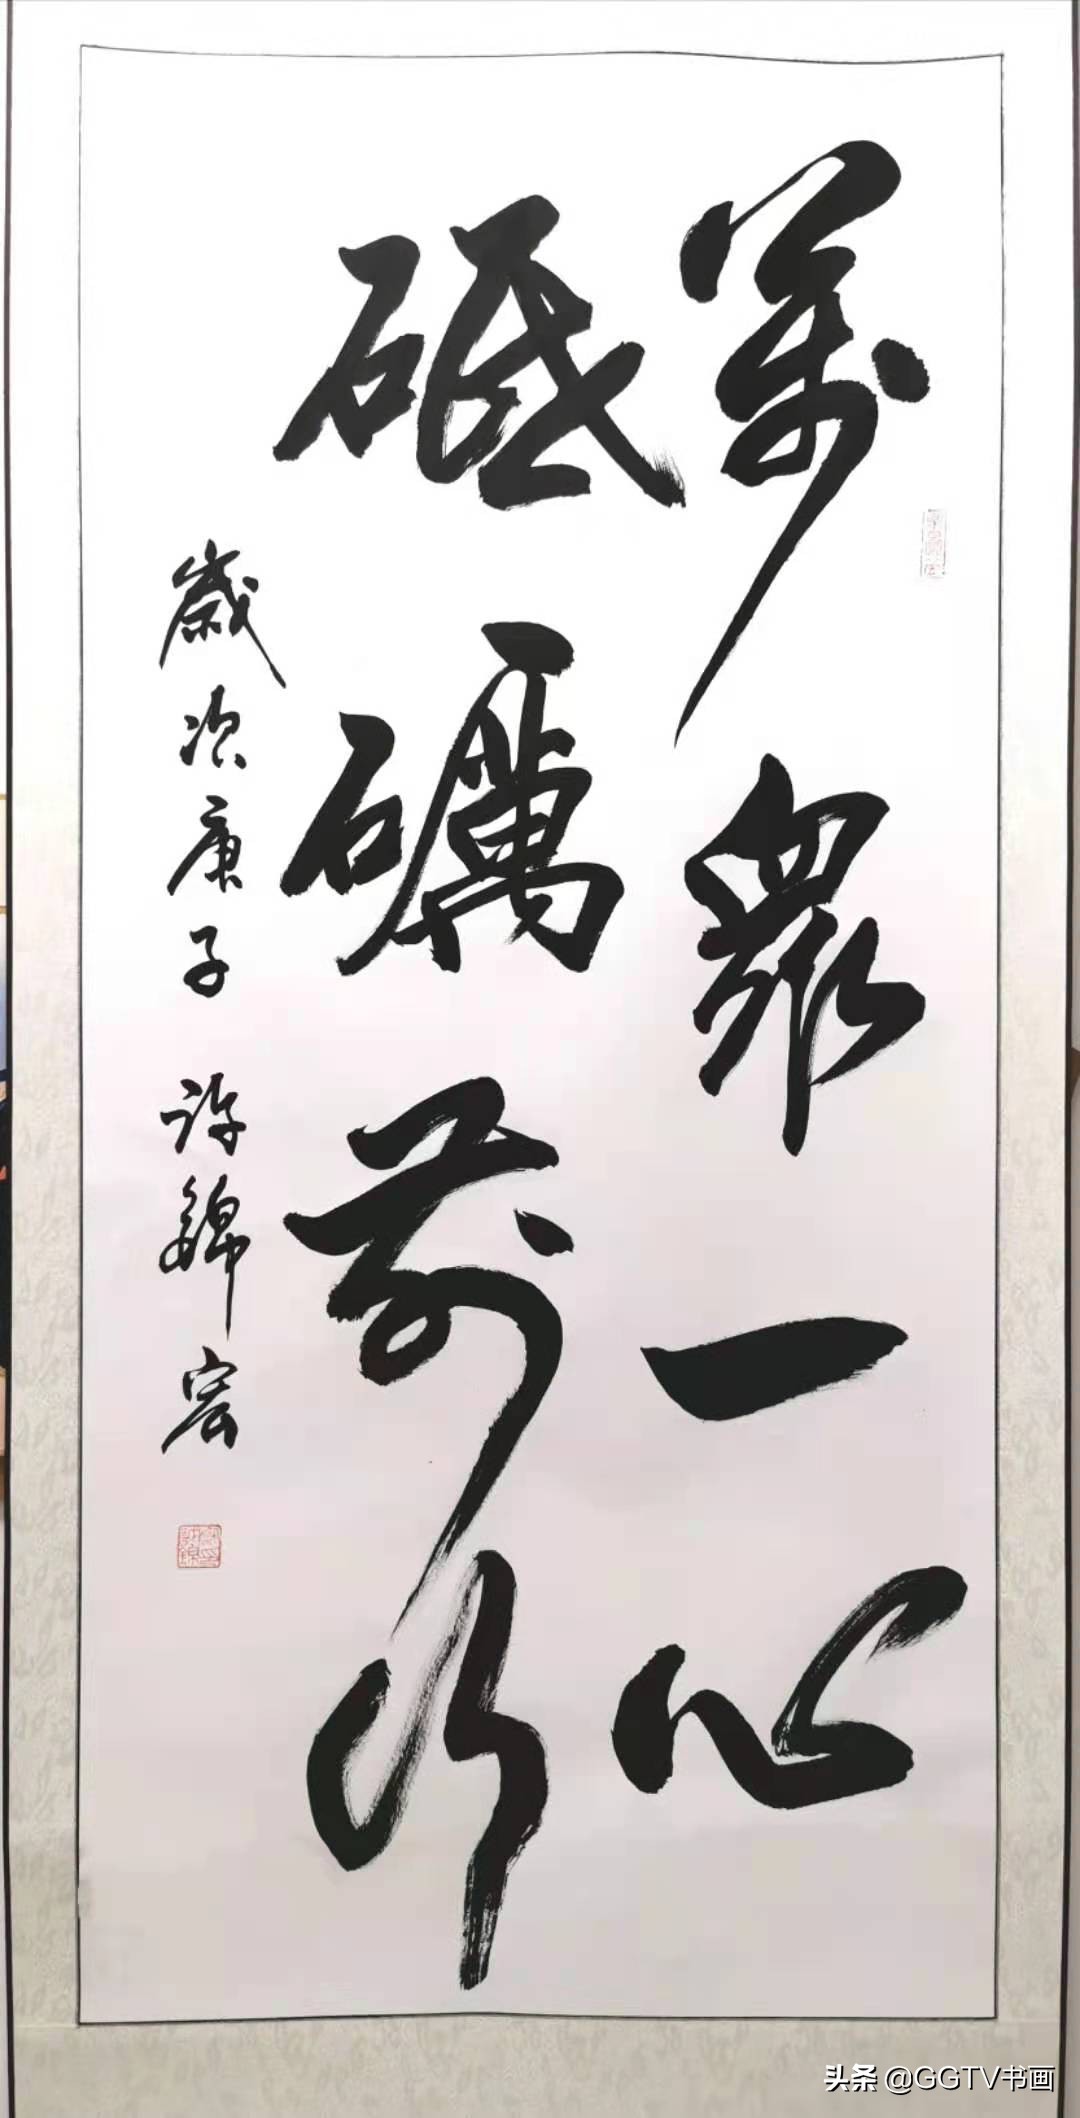 萬眾一心
砥礪前行
歲次庚子 許錦宏
头条 @GGTV书画